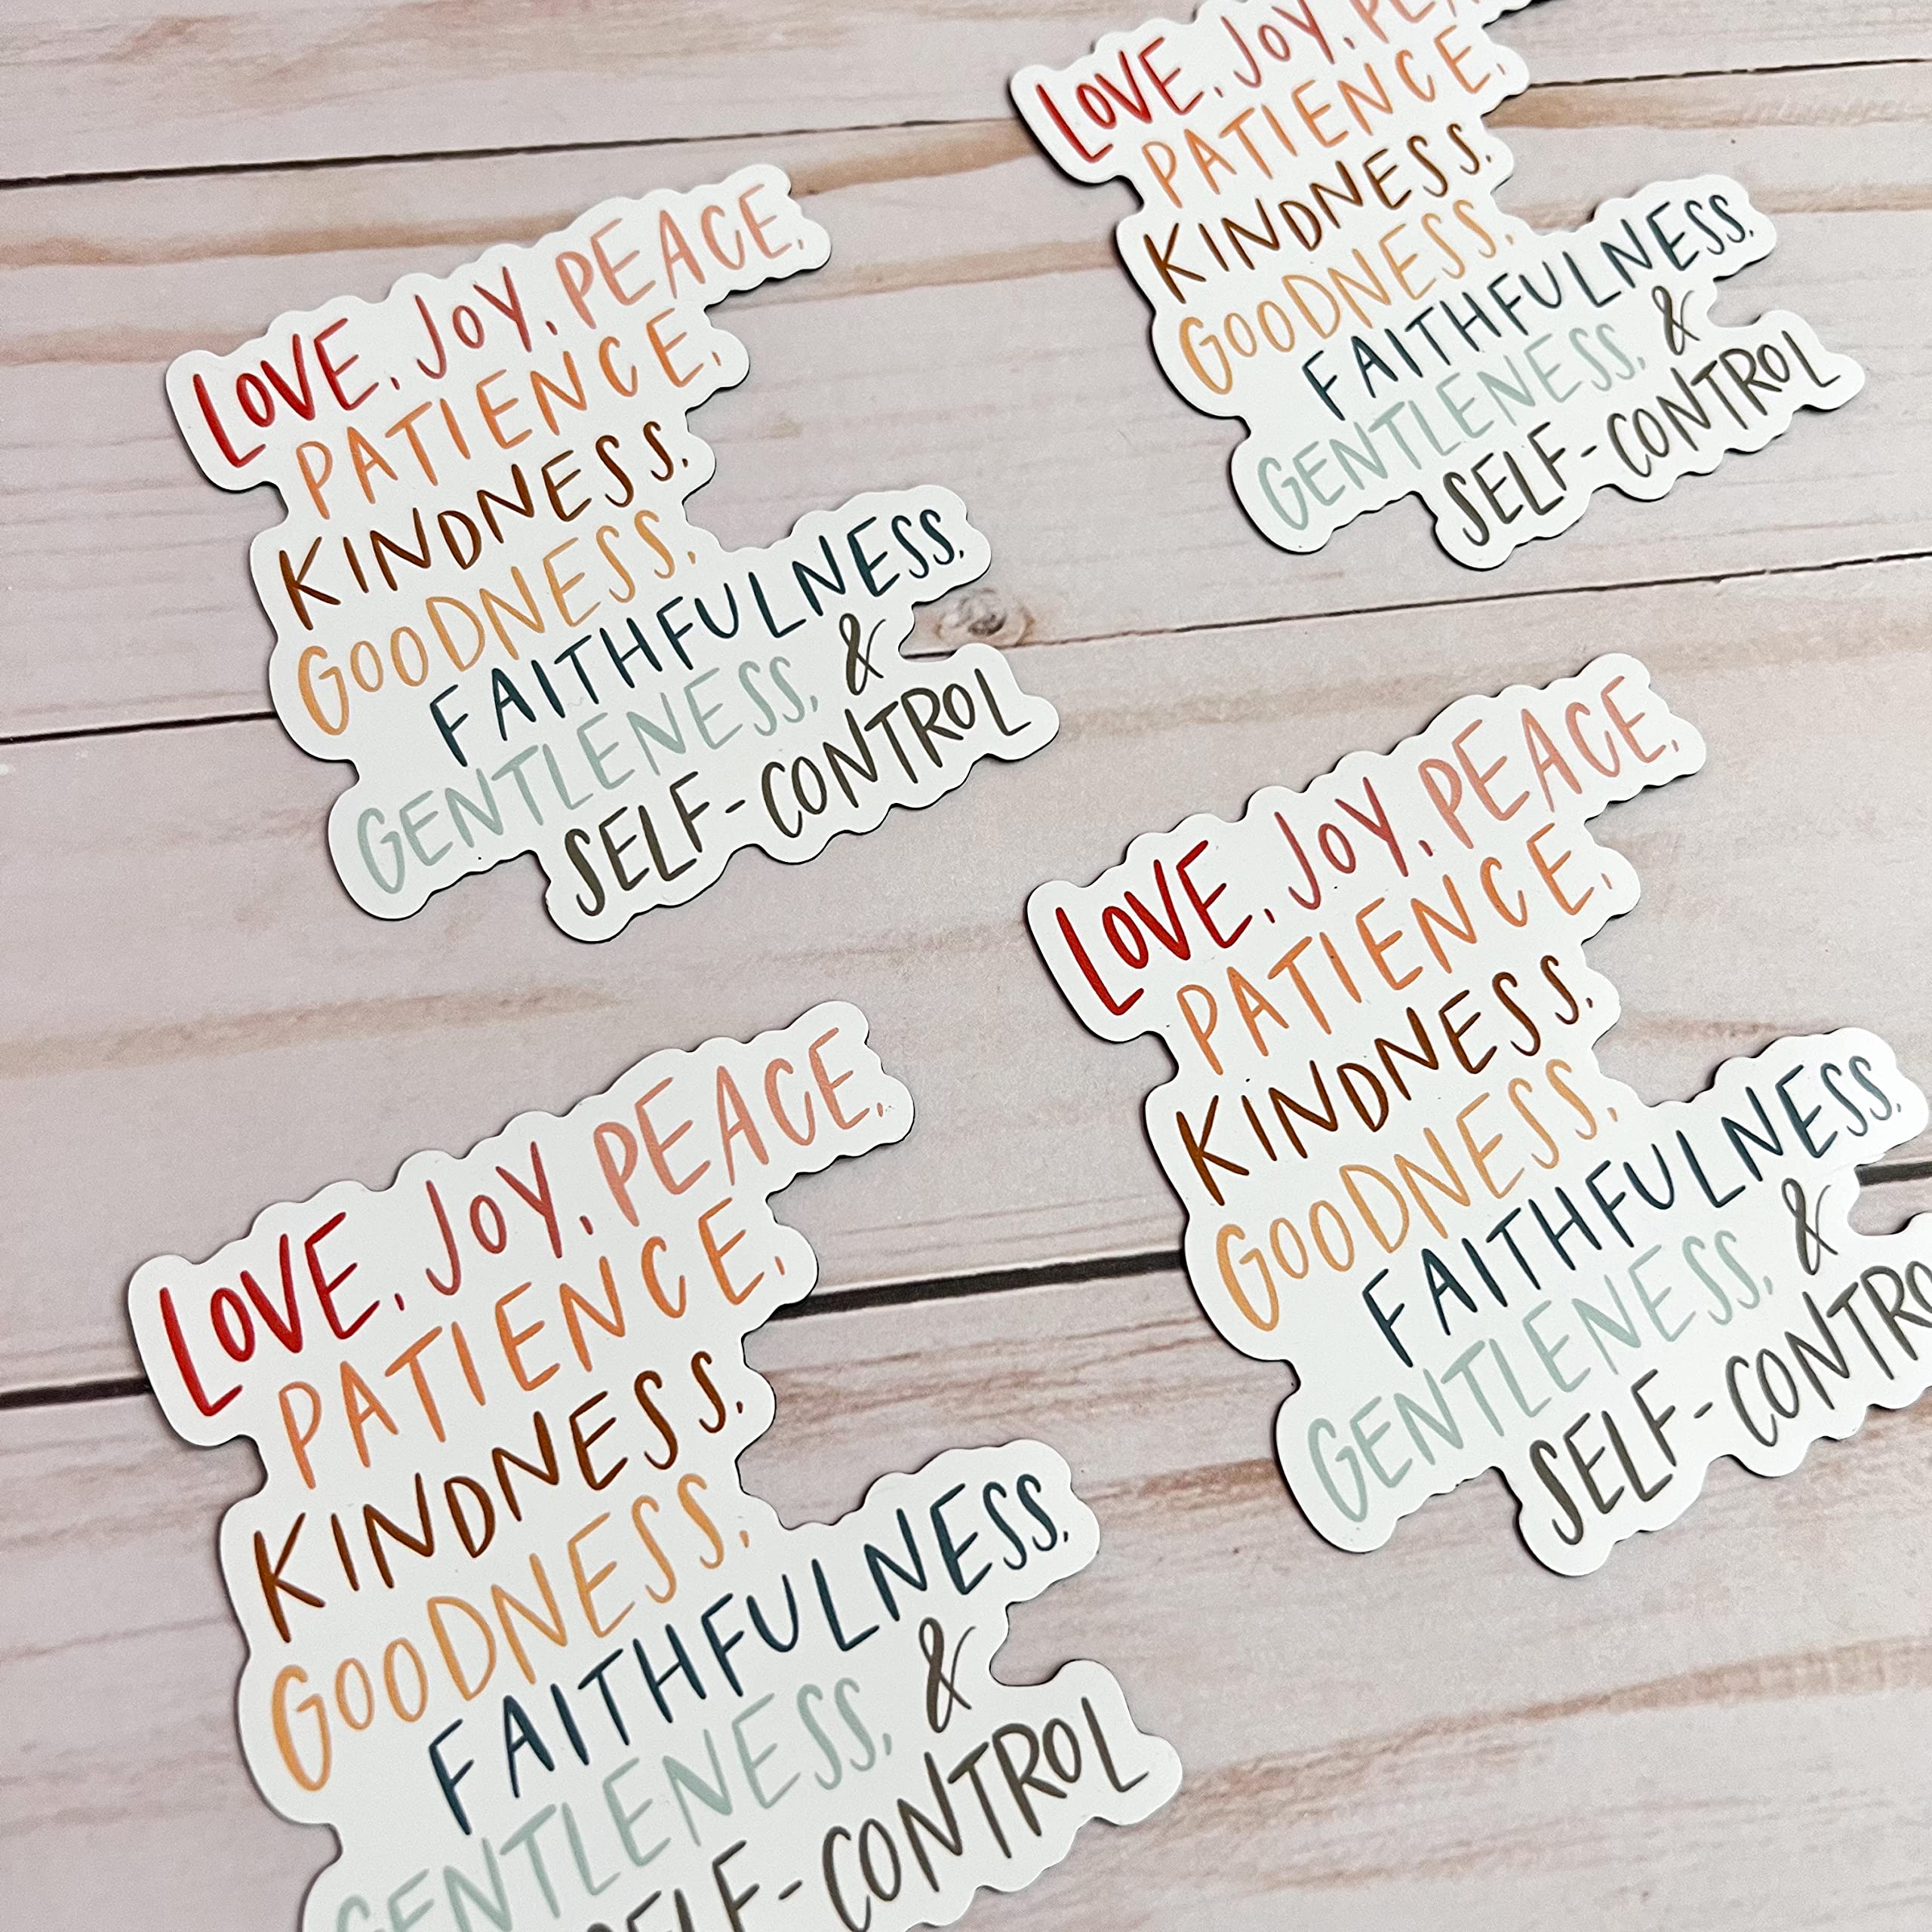 LOVE, JOY, PEACE,
PATIENCE,
KINDNESS,
GOODNESS,
FAITHFULNESS,
GENTLENESS, &
SELF-CONTROL
LOVE, JOY,
PATIENCE,
KINDNESS,
GOODNESS,
FAITHFULNESS,
GENTLENESS, &
SELF-CONTROL
LOVE, JOY, PEACE,
PATIENCE,
KINDNESS,
GOODNESS,
FAITHFULNESS,
GENTLENESS, &
SELF-CONTRO
LOVE, JOY, PEACE,
PATIENCE,
KINDNESS,
GOODNESS,
FAITHFULNESS,
GENTLENESS, &
SELF-CONTROL